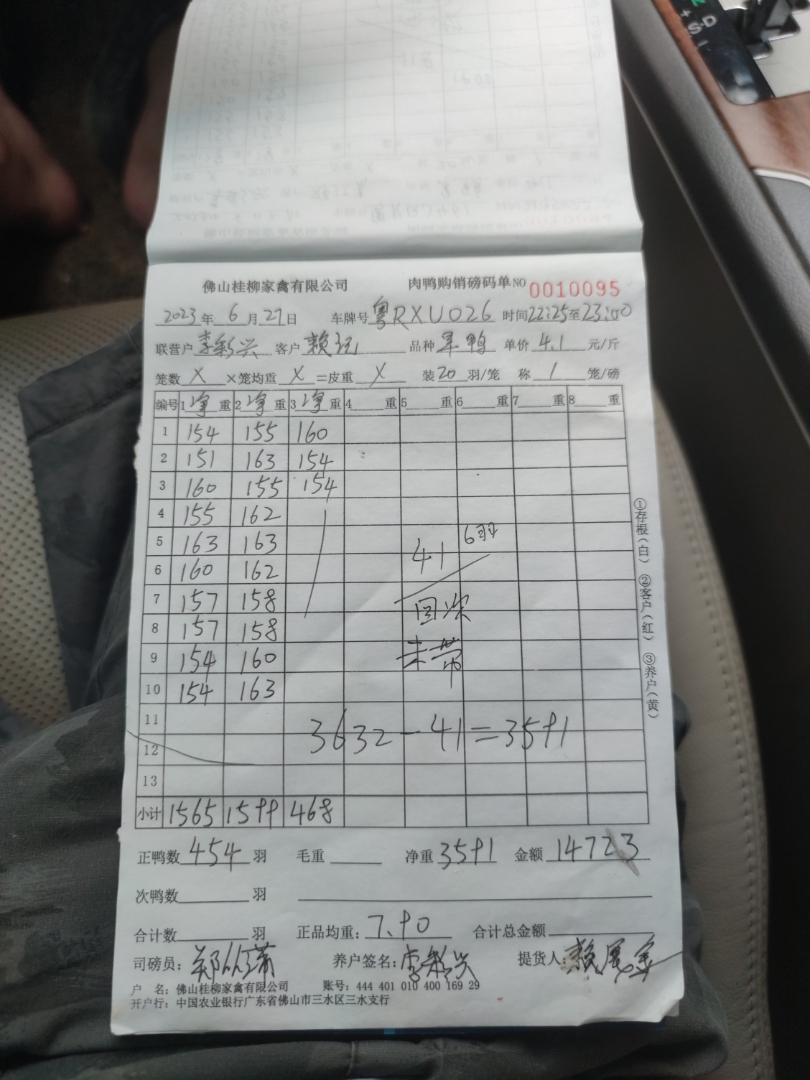 佛山桂柳家禽有限公司 肉鸭购销磅码单 NO 0010095
2023年 6月 27日 车牌号 粤RXU026 时间 22:25至23:00
联营户 李彩兴 客户 赖 品种 鸭 单价 4.1 元/斤
笼数 X ×笼均重 X =皮重 X 装 20 羽/笼 称 1 笼/磅
编号 1 净 重 2 净 重 3 净 重 4 重 5 重 6 重 7 重 8 重
1 154 155 160
2 151 163 154
3 160 155 154
4 155 162
5 163 163
6 160 162
7 157 158
8 157 158
9 154 160
10 154 163
11
12
13
41 6羽
回次
未带
3632-41=3591
小计 1565 1599 468
正鸭数 454 羽 毛重 净重 3591 金额 14723
次鸭数 羽
合计数 羽 正品均重: 7.90 合计总金额
司磅员: 郑 养户签名: 李彩兴 提货人: 赖
户 名: 佛山桂柳家禽有限公司 账号: 444 401 010 400 169 29
开户行: 中国农业银行广东省佛山市三水区三水支行
①存根(白) ②客户(红) ③养户(黄)
S-D